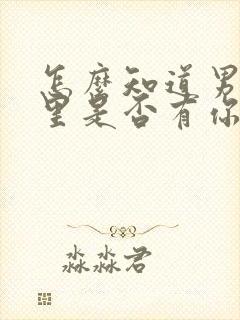 怎麼知道男
里是否有你
淼淼君